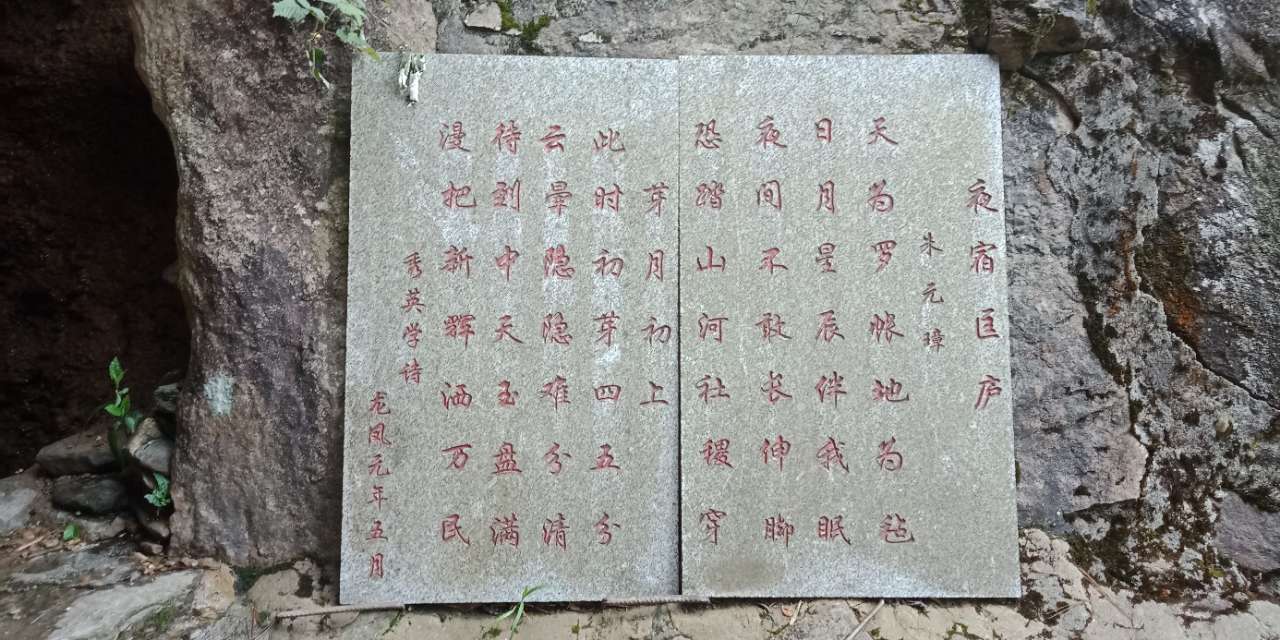 夜宿匡庐
朱元璋
天为罗帐地为毡
日月星辰伴我眠
夜间不敢长伸脚
恐踏山河社稷穿
芽月初上
此时初芽四五分
云晕隐隐难分清
待到中天玉盘满
漫把新辉洒万民
秀英学诗
龙凤元年五月